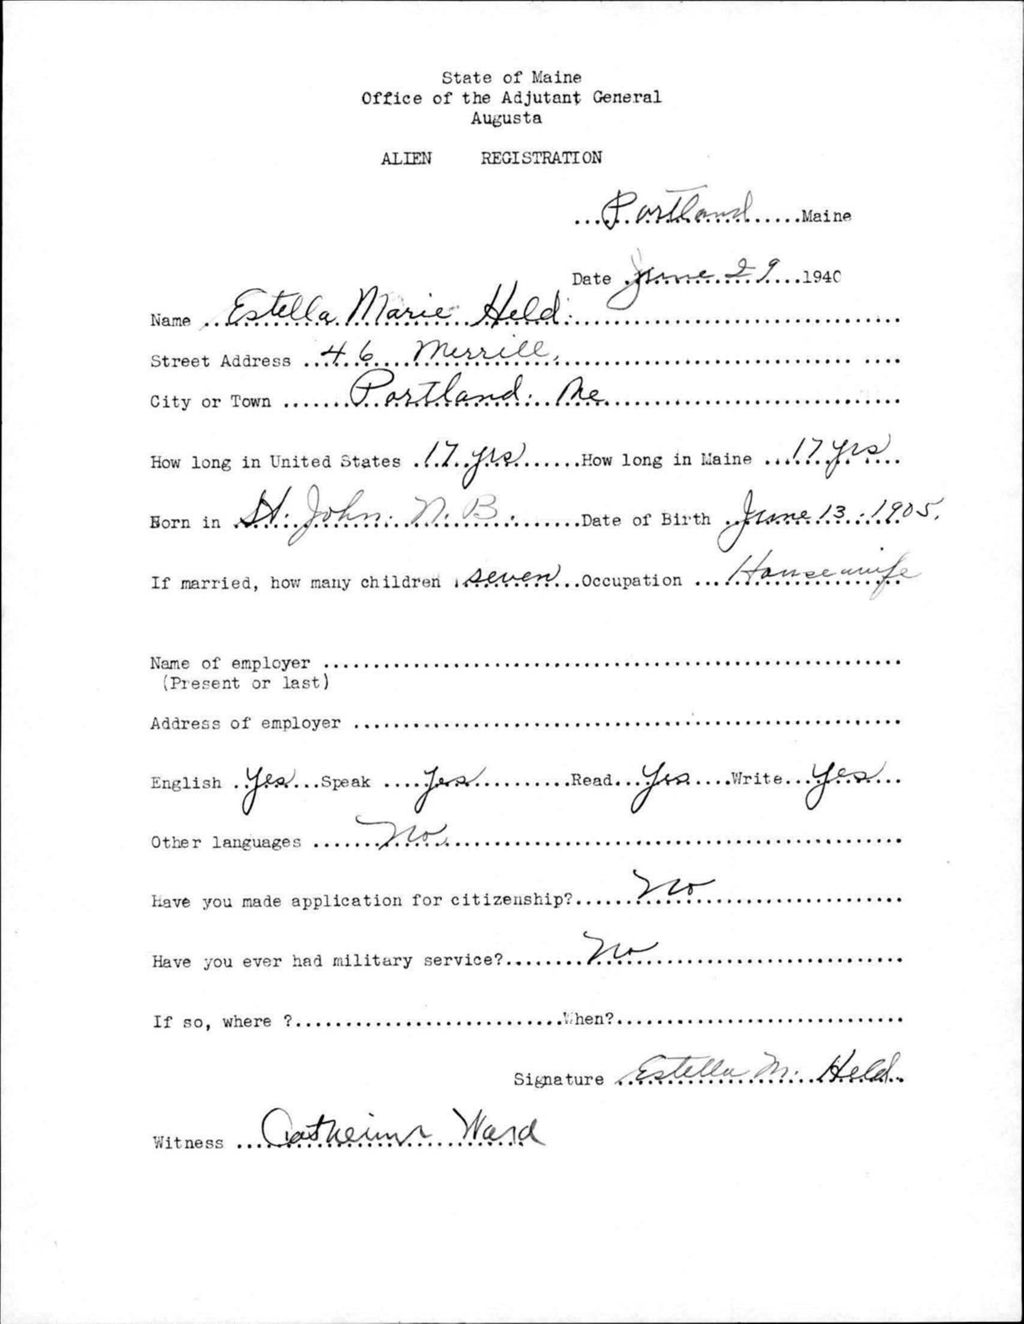 State of Maine
Office of the Adjutant General
Augusta
ALIEN REGISTRATION
...Portland......Maine
Date .June 29...1940
Name ..Estella Marie Held.
Street Address ..46 Merrill.
City or Town .......Portland. Me.
How long in United States .17 yrs.......How long in Maine ...17 yrs..
Born in .St. John. N. B. ........Date of Birth ..June 13. 1905.
If married, how many children .seven...Occupation ...Housewife
Name of employer ...
(Present or last)
Address of employer ...
English ..Yes...Speak ....Yes..........Read...Yes....Write...Yes...
Other languages .......No.
Have you made application for citizenship?......No
Have you ever had military service?........No
If so, where ?...........................When?...
Signature ..Estella M. Held.
Witness ...Catherine Ward